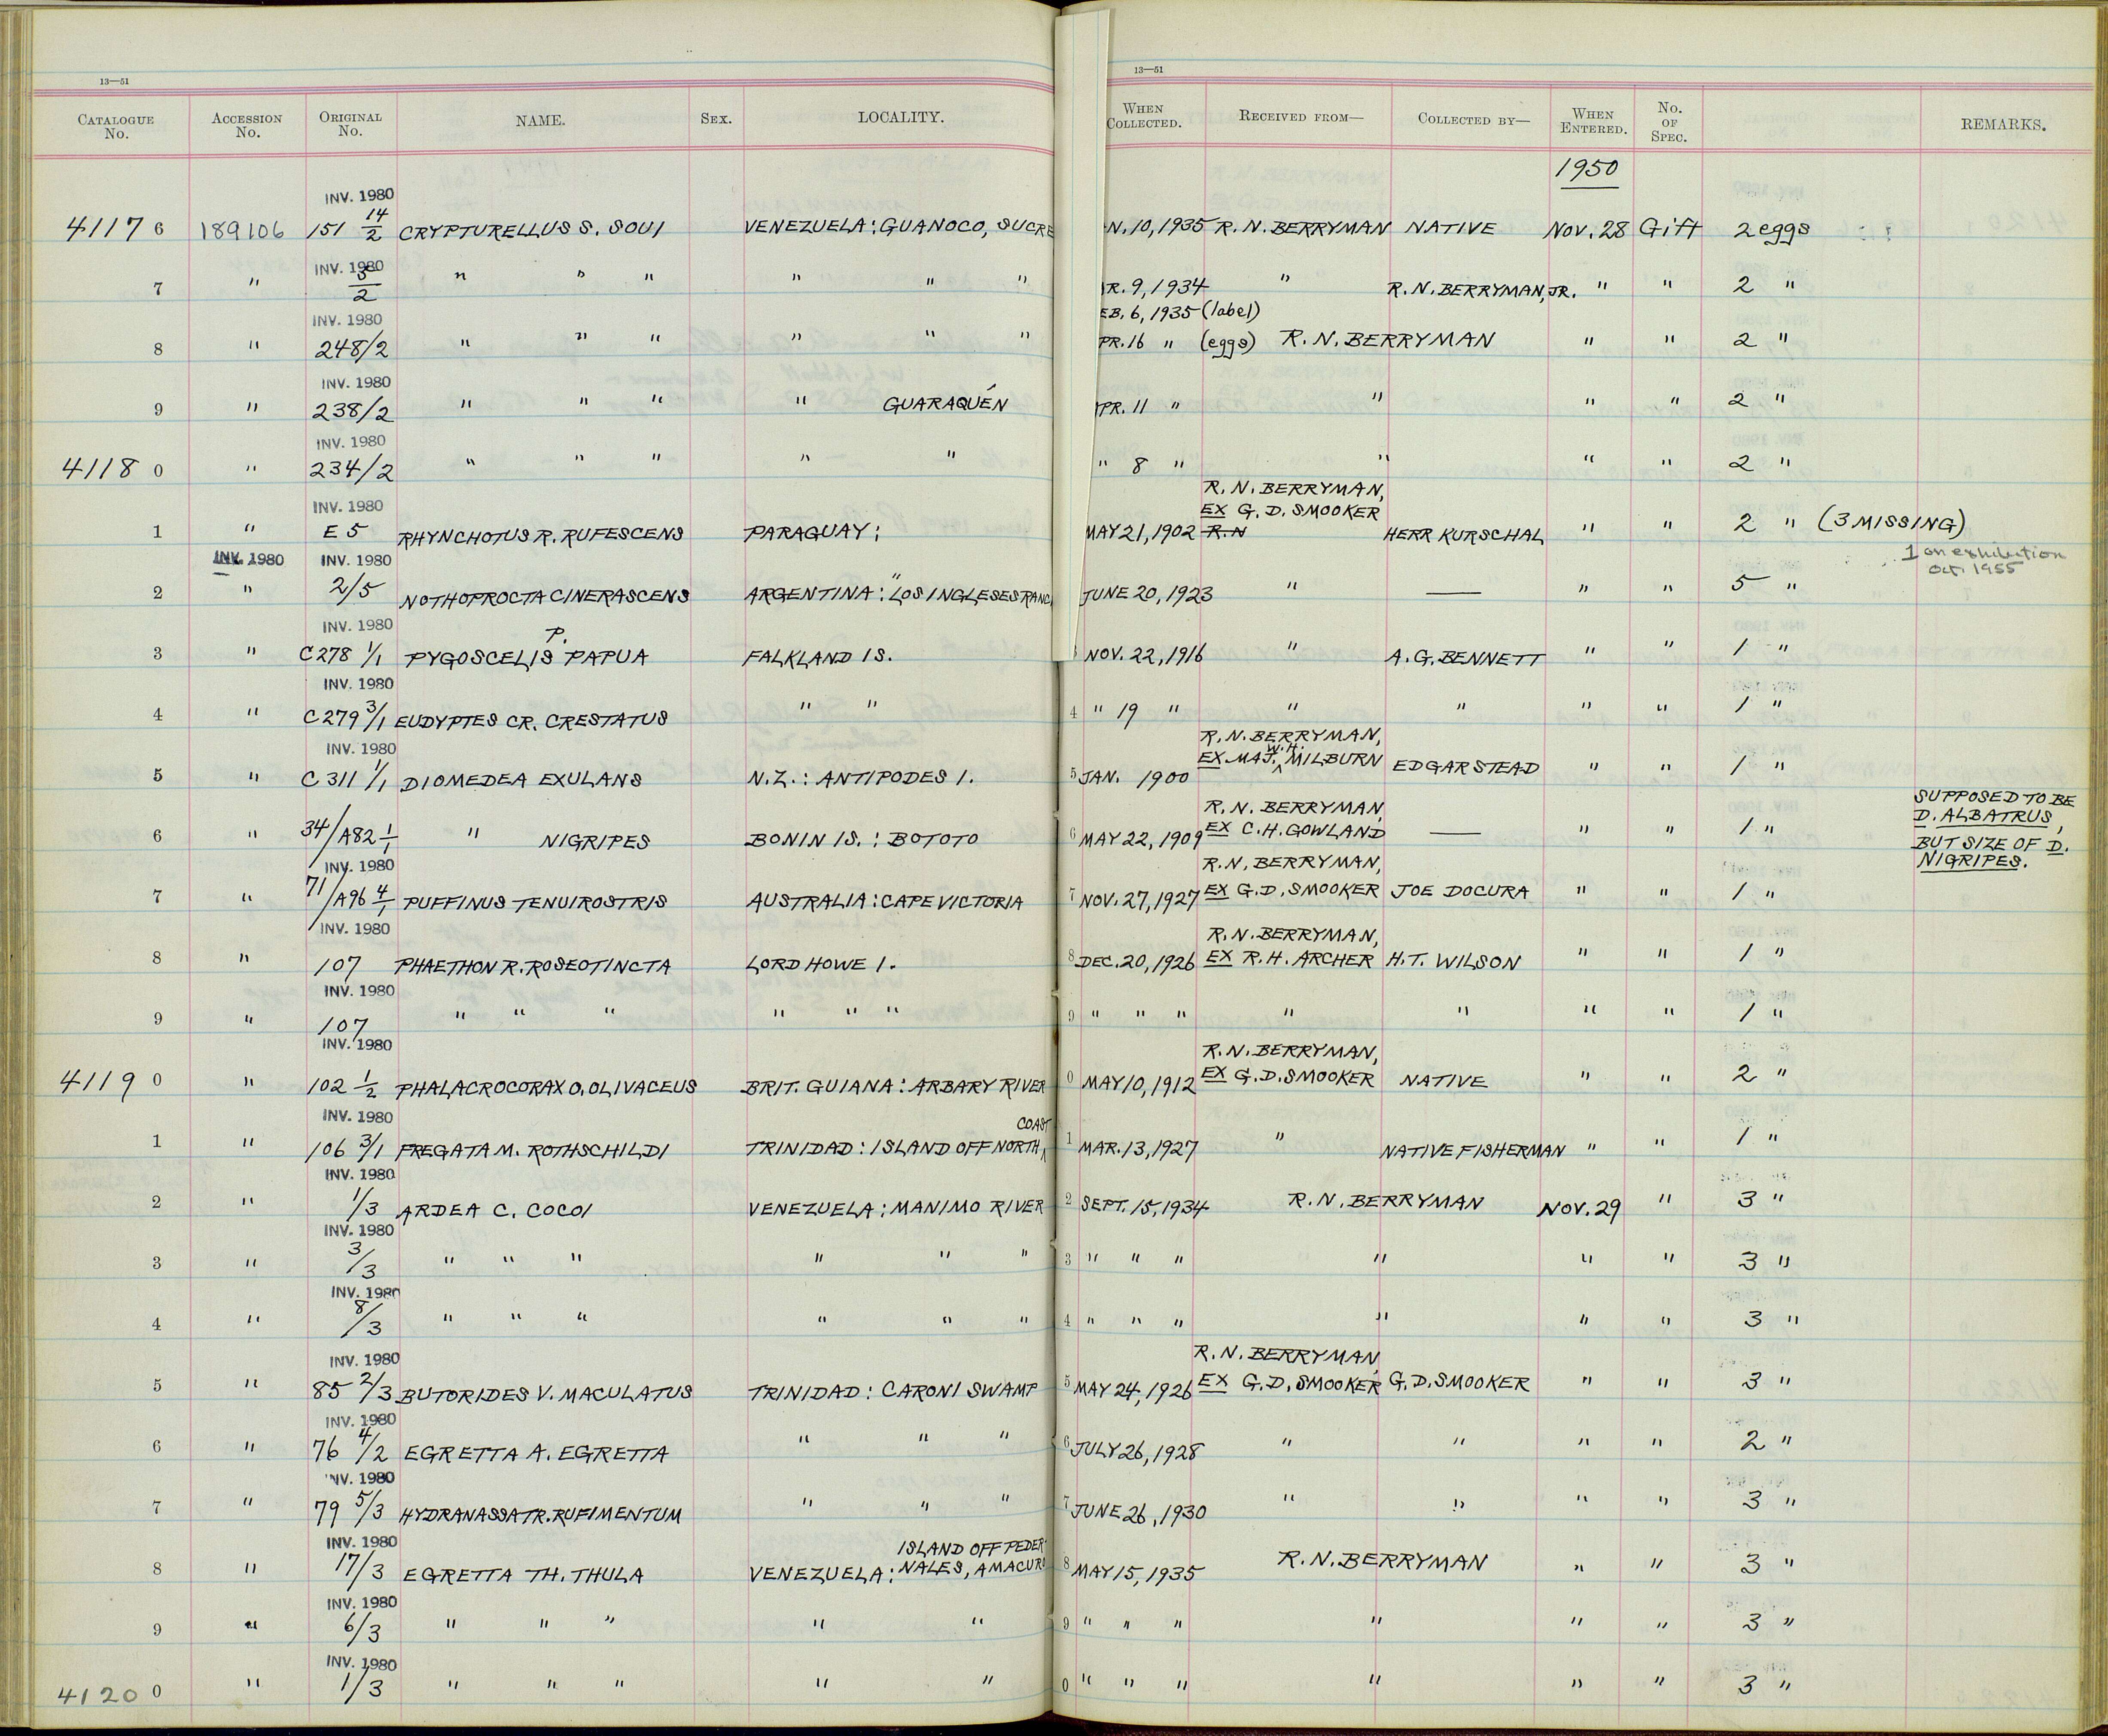 13—51
13—51
CATALOGUE No. ACCESSION No. ORIGINAL No. NAME. SEX. LOCALITY. WHEN COLLECTED. RECEIVED FROM— COLLECTED BY— WHEN ENTERED. No. OF SPEC. REMARKS.
1950
INV. 1980
4117 6 189106 151 14/2 CRYPTURELLUS S. SOUI VENEZUELA: GUANOCO, SUCRE N. 10, 1935 R. N. BERRYMAN NATIVE NOV. 28 Gift 2 eggs
INV. 1980
7 " 5/2 " " " " " " R. 9, 1934 " R. N. BERRYMAN, JR. " " 2 "
EB. 6, 1935 (label)
INV. 1980
8 " 248/2 " " " " " " PR. 16 " (eggs) R. N. BERRYMAN " " 2 "
INV. 1980
9 " 238/2 " " " " GUARAQUÉN PR. 11 " " " " 2 "
INV. 1980
4118 0 " 234/2 " " " " " " 8 " " " " 2 "
R. N. BERRYMAN,
INV. 1980 EX G. D. SMOOKER
1 " E 5 RHYNCHOTUS R. RUFESCENS PARAGUAY: MAY 21, 1902 R. N HERR KURSCHAL " " 2 " (3 MISSING)
INV. 1980 INV. 1980 1 on exhibition
Oct. 1955
2 " 2/5 NOTHOPROCTA CINERASCENS ARGENTINA: "LOS INGLESES RANC JUNE 20, 1923 " — " " 5 "
INV. 1980 P.
3 " C278 1/1 PYGOSCELIS PAPUA FALKLAND IS. NOV. 22, 1916 " A. G. BENNETT " " 1 "
INV. 1980
4 " C279 3/1 EUDYPTES CR. CRESTATUS " " 4 " 19 " " " " " 1 "
R. N. BERRYMAN,
INV. 1980 W. H.
5 " C 311 1/1 DIOMEDEA EXULANS N.Z.: ANTIPODES I. 5 JAN. 1900 EX MAJ. MILBURN EDGAR STEAD " " 1 "
R. N. BERRYMAN, SUPPOSED TO BE
6 " 34/A82 1/1 " NIGRIPES BONIN IS.: BOTOTO 6 MAY 22, 1909 EX C. H. GOWLAND — " " 1 " D. ALBATRUS,
BUT SIZE OF D.
NIGRIPES.
INV. 1980 R. N. BERRYMAN,
7 " 71/A96 4/1 PUFFINUS TENUIROSTRIS AUSTRALIA: CAPE VICTORIA 7 NOV. 27, 1927 EX G. D. SMOOKER JOE DOCURA " " 1 "
INV. 1980 R. N. BERRYMAN,
8 " 107 PHAETHON R. ROSEOTINCTA LORD HOWE I. 8 DEC. 20, 1926 EX R. H. ARCHER H. T. WILSON " " 1 "
INV. 1980
9 " 107 " " " " " " 9 " " " " " " " 1 "
INV. 1980 R. N. BERRYMAN,
4119 0 " 102 1/2 PHALACROCORAX O. OLIVACEUS BRIT. GUIANA: ARBARY RIVER 0 MAY 10, 1912 EX G. D. SMOOKER NATIVE " " 2 "
INV. 1980 COAST
1 " 106 3/1 FREGATA M. ROTHSCHILDI TRINIDAD: ISLAND OFF NORTH 1 MAR. 13, 1927 " NATIVE FISHERMAN " " 1 "
INV. 1980
2 " 1/3 ARDEA C. COCOI VENEZUELA: MANIMO RIVER 2 SEPT. 15, 1934 R. N. BERRYMAN NOV. 29 " 3 "
INV. 1980
3 " 3/3 " " " " " " 3 " " " " " " 3 "
INV. 1980
4 " 8/3 " " " " " " 4 " " " " " " 3 "
INV. 1980 R. N. BERRYMAN,
5 " 85 2/3 BUTORIDES V. MACULATUS TRINIDAD: CARONI SWAMP 5 MAY 24, 1926 EX G. D. SMOOKER G. D. SMOOKER " " 3 "
INV. 1980
6 " 76 4/2 EGRETTA A. EGRETTA " " " 6 JULY 26, 1928 " " " " 2 "
INV. 1980
7 " 79 5/3 HYDRANASSA TR. RUFIMENTUM " " " 7 JUNE 26, 1930 " " " " 3 "
INV. 1980 ISLAND OFF PEDER-
8 " 17/3 EGRETTA TH. THULA VENEZUELA: NALES, AMACURO 8 MAY 15, 1935 R. N. BERRYMAN " " 3 "
INV. 1980
9 " 6/3 " " " " " 9 " " " " " " 3 "
INV. 1980
4120 0 " 1/3 " " " " " 0 " " " " " " 3 "